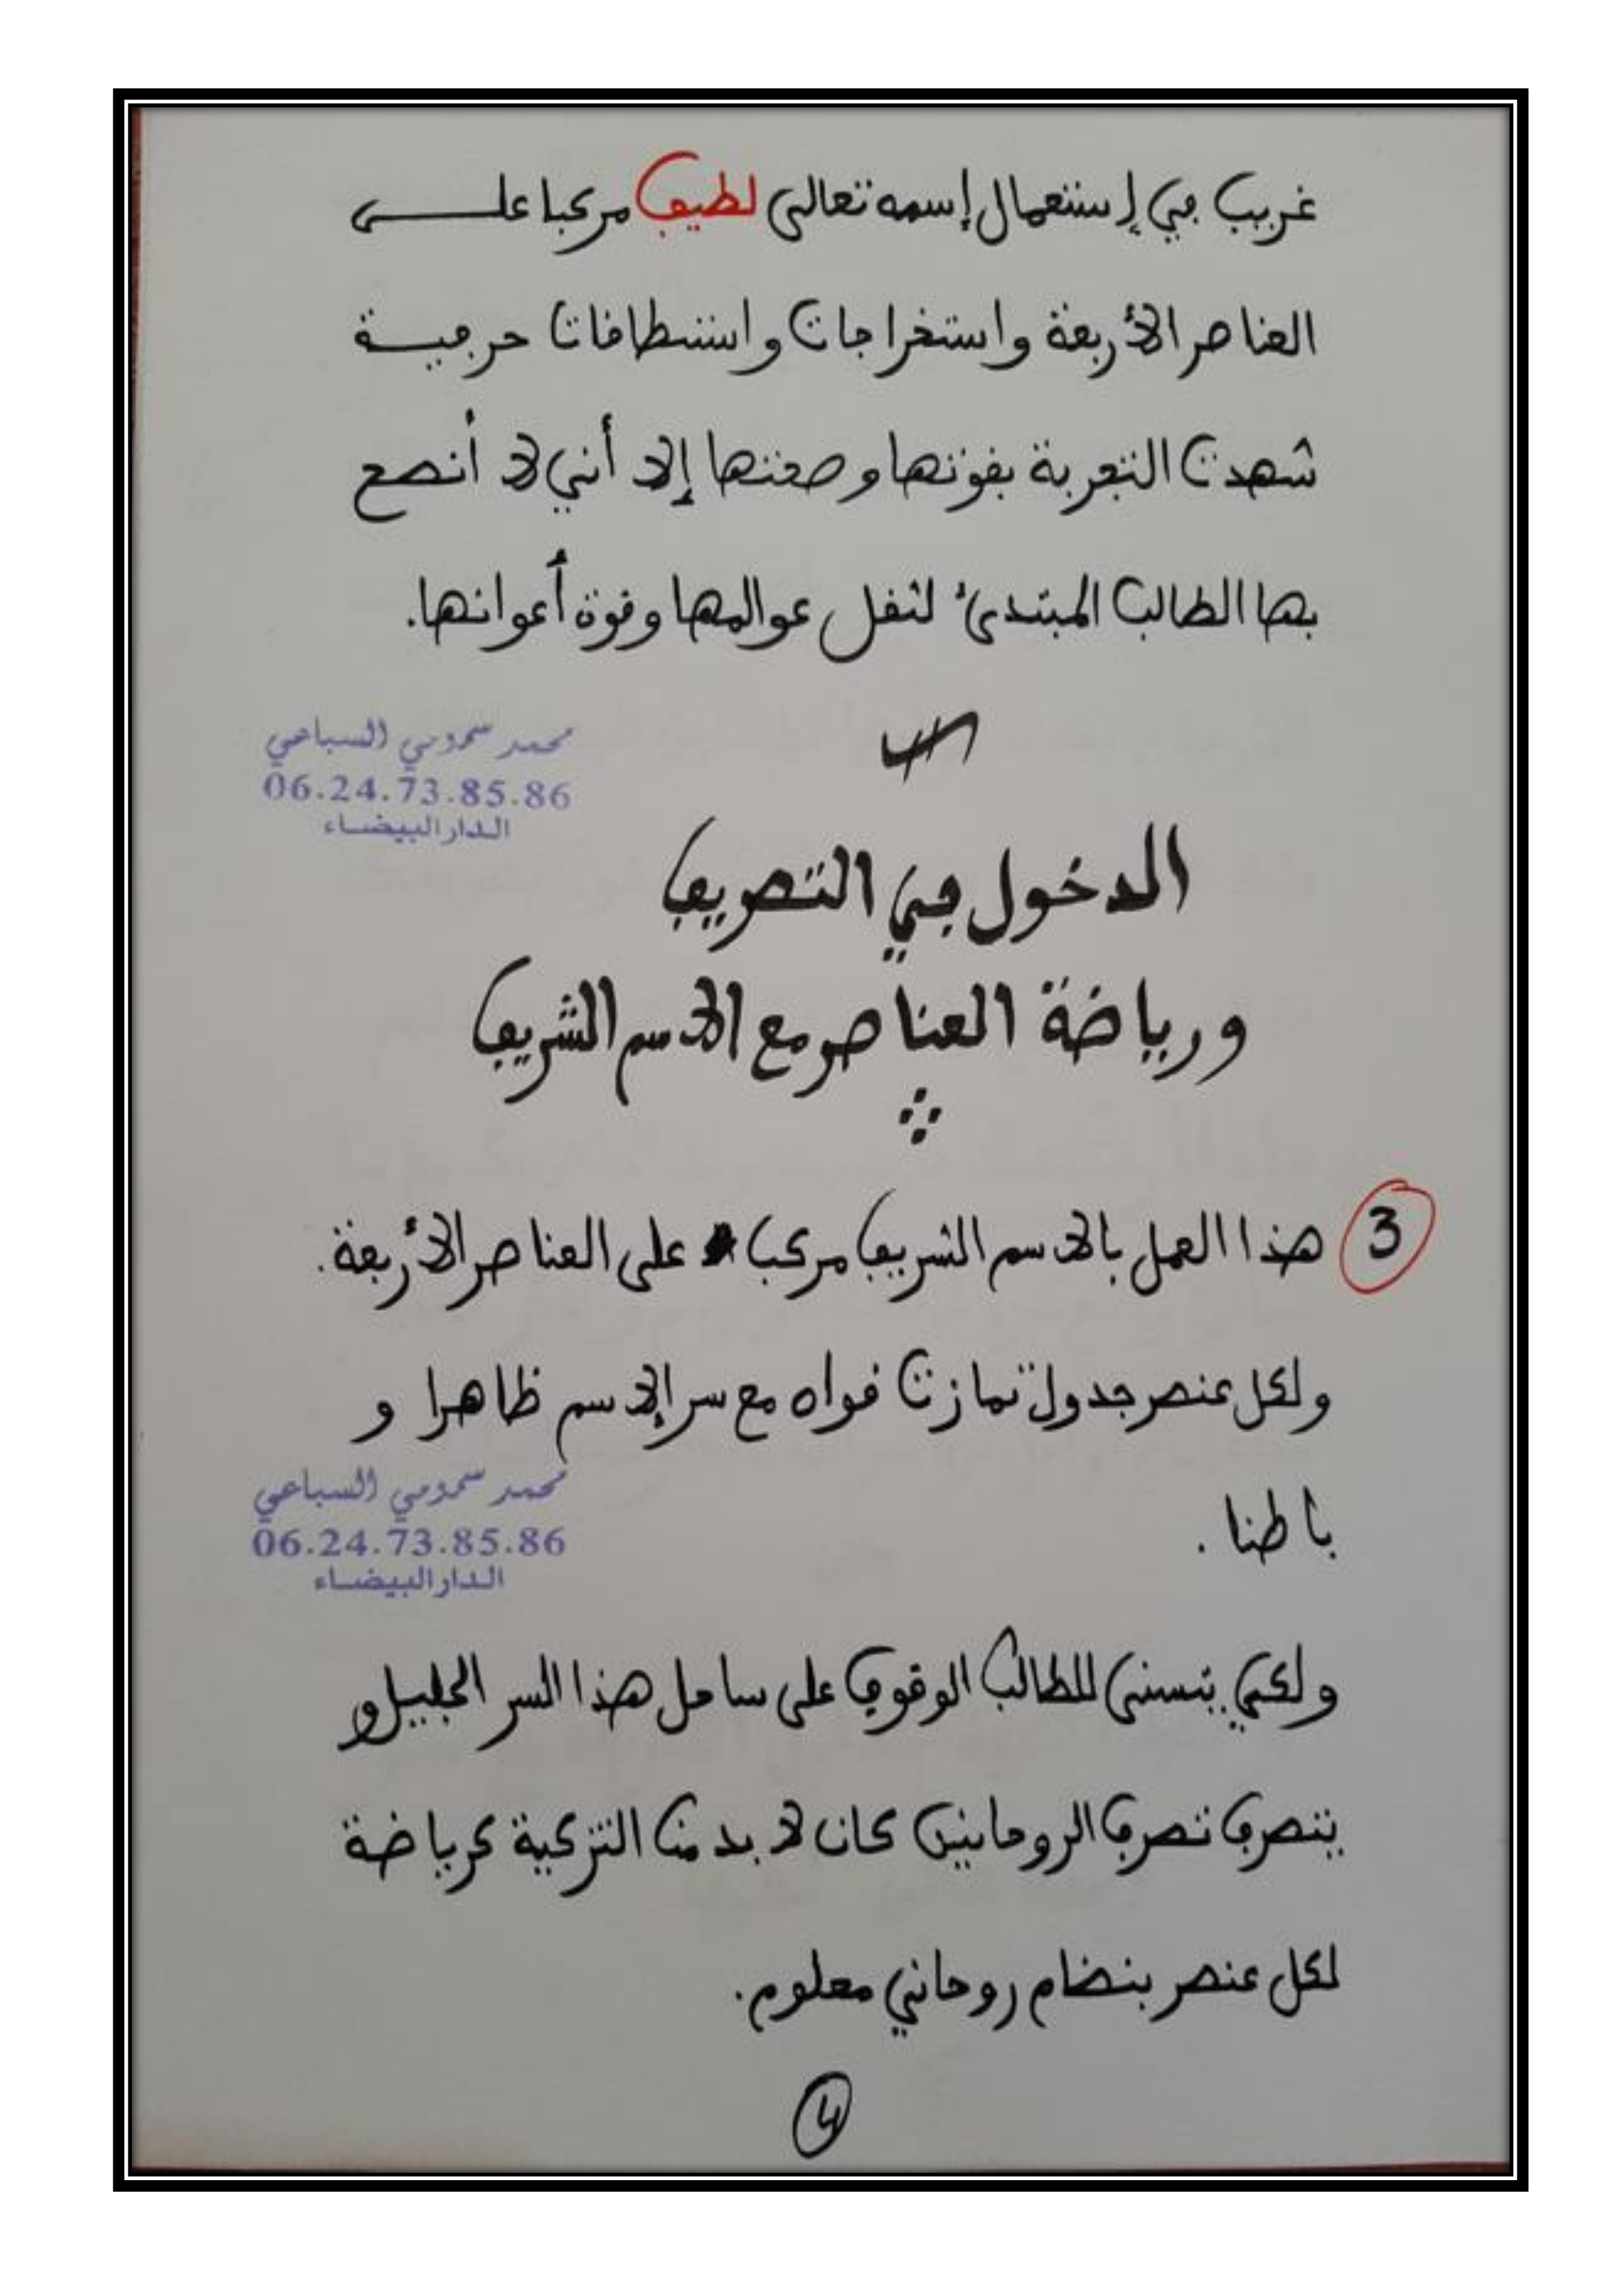 غريب في إستعمال إسمه تعالى لطيف مركبا على
العناصر الأربعة واستخراجات واستنطاقات حرفية
شهدت التجربة بقوتها وصحتها إلا أنني لا أنصح
بها الطالب المبتدئ لثقل عوالمها وقوة أعوانها.
محمد سموني السباعي
06.24.73.85.86
الدار البيضاء
الدخول في التصريف
ورياضة العناصر مع الاسم الشريف
3 هذا العمل بالاسم الشريف مركب على العناصر الأربعة.
ولكل عنصر جدول تمازت قواه مع سر الإسم ظاهرا و
باطنا.
محمد سموني السباعي
06.24.73.85.86
الدار البيضاء
ولكي يتسنى للطالب الوقوف على ساحل هذا السر الجليل و
يتصرف تصرف الروحانيين كان لا بد من التزكية كرياضة
لكل عنصر بنضام روحاني معلوم.
4